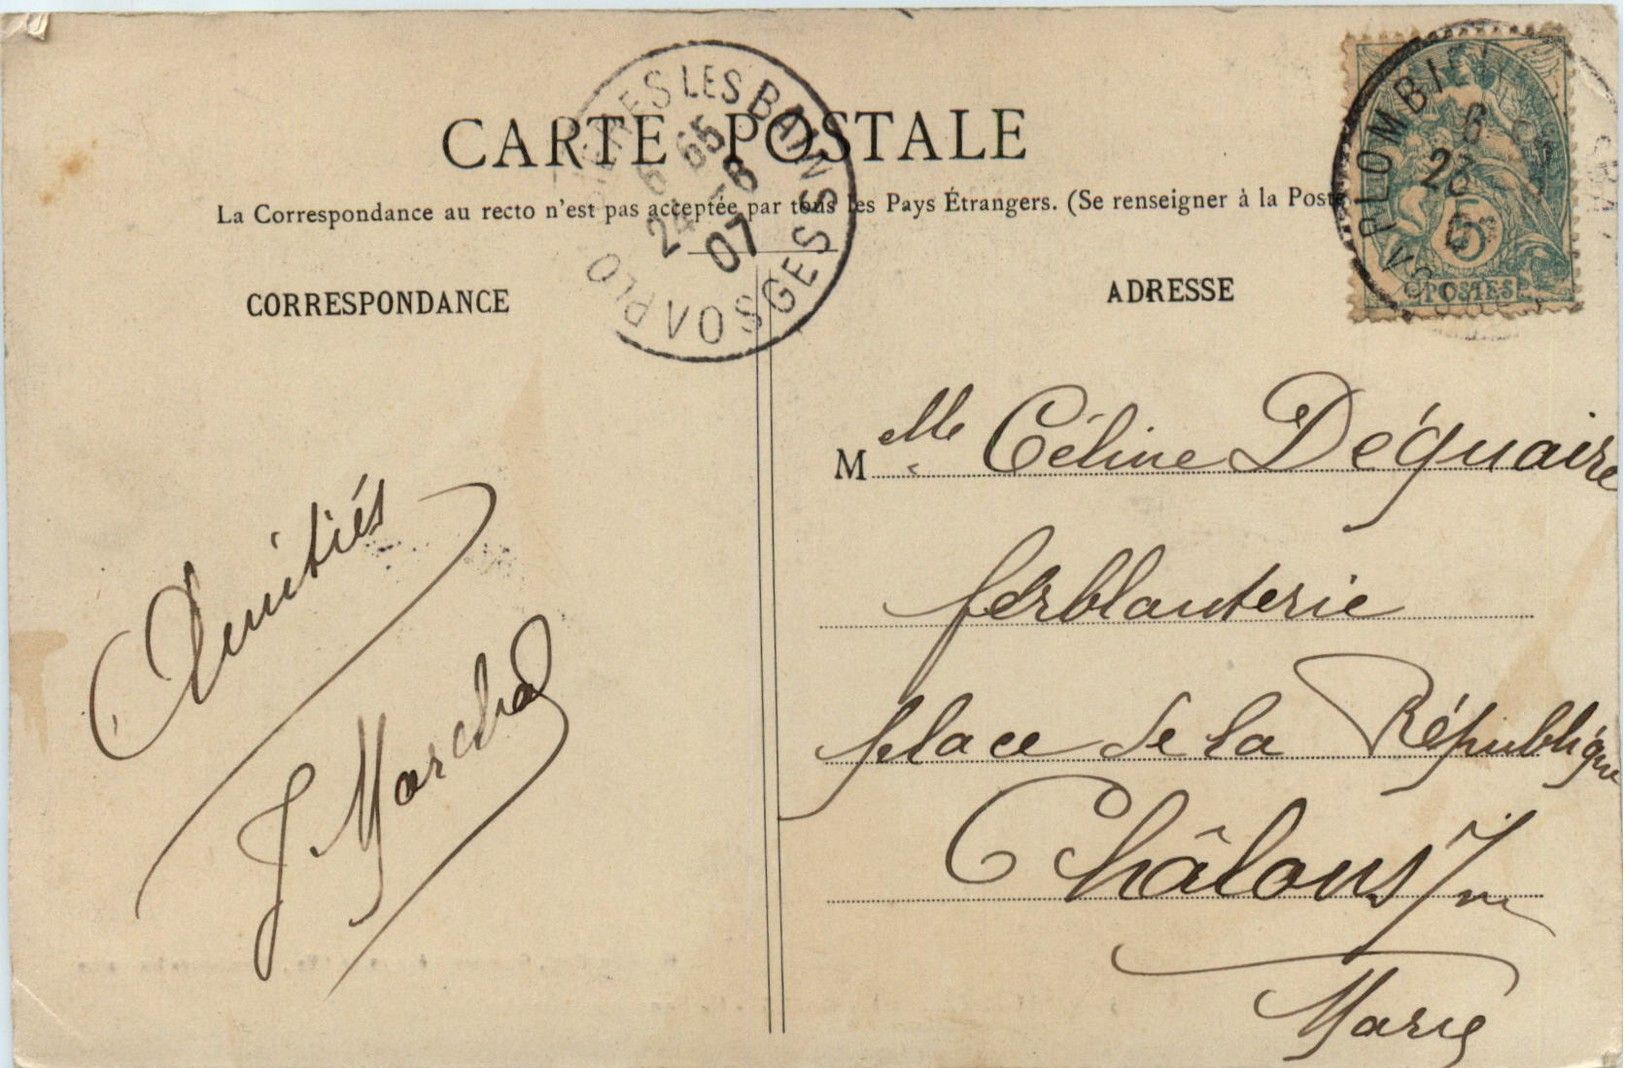 CARTE POSTALE
La Correspondance au recto n'est pas acceptée par tous les Pays Étrangers. (Se renseigner à la Poste
CORRESPONDANCE
ADRESSE
LES BAINS
VOSGES
6 65
24 - 6
07
PLOMBI
6
23
5
POSTES
Amitiés
J. Marchal
Mlle Céline Déquaire
ferblanterie
place de la République
Châlons s/m
Marne